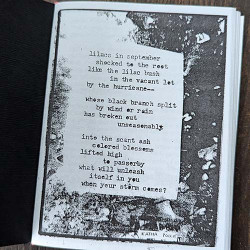 lilacs in september
shocked to the root
like the lilac bush
in the vacant lot
by the hurricane--
whose black branch split
by wind or rain
has broken out
unseasonably
into the scent ash
colored blossoms
lifted high
to passerby
what will unleash
itself in you
when your storm comes?
KATHA